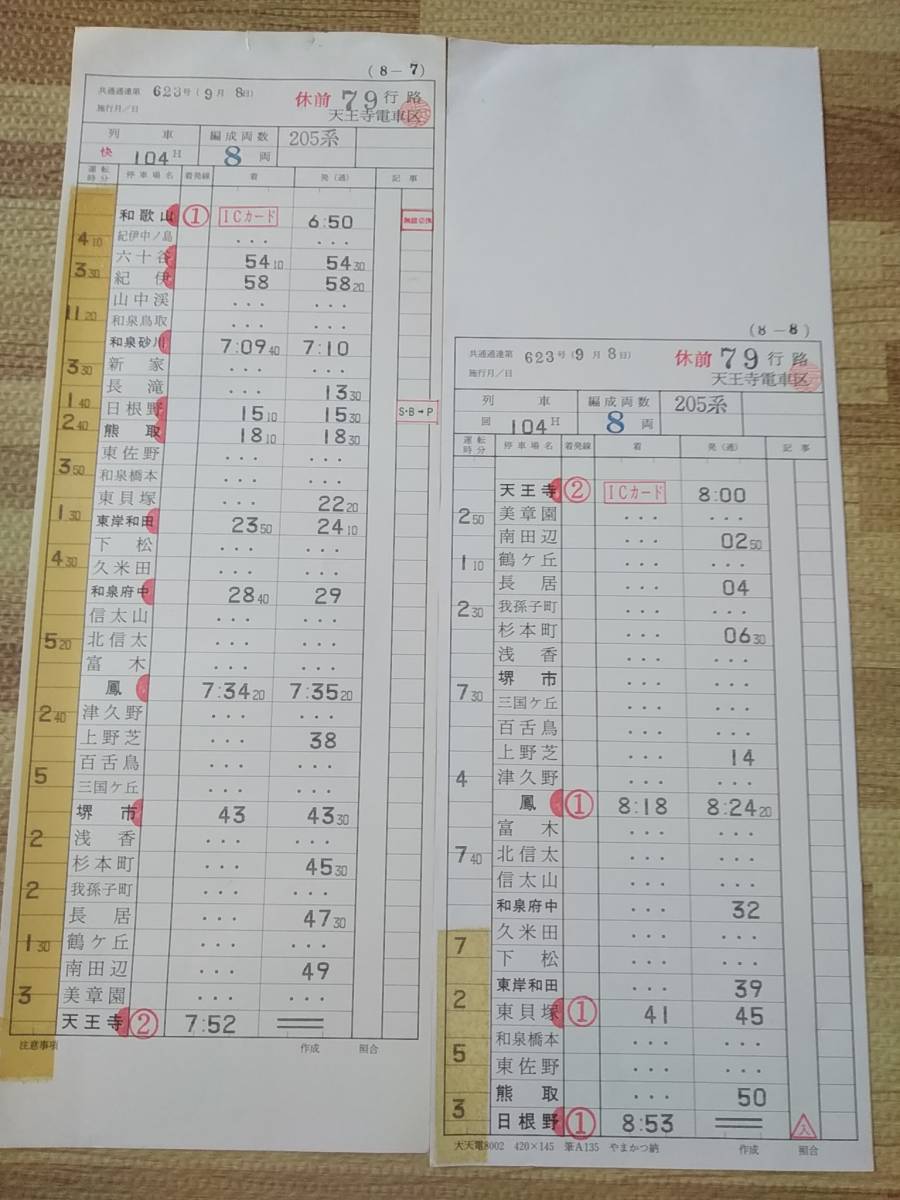 (8-7)
共通通達第 623号(9月8日) 休前 79行路
施行月/日 天王寺電車区
列車 編成両数 205系
快 104H 8両
運転時分 停車場名 着発線 着 発(通) 記事
和歌山 ① ICカード 6:50
紀伊中ノ島 ... ...
4 10
六十谷 54 10 54 30
3 30
紀伊 58 58 20
山中渓 ... ...
11 20
和泉鳥取 ... ...
和泉砂川 7:09 40 7:10
3 30
新家 ... ...
長滝 ... 13 30
1 40
日根野 15 10 15 30 S・B→P
2 40
熊取 18 10 18 30
東佐野 ... ...
3 50
和泉橋本 ... ...
東貝塚 ... 22 20
1 30
東岸和田 23 50 24 10
下松 ... ...
4 30
久米田 ... ...
和泉府中 28 40 29
信太山 ... ...
5 20
北信太 ... ...
富木 ... ...
鳳 7:34 20 7:35 20
2 40
津久野 ... ...
上野芝 ... 38
百舌鳥 ... ...
5
三国ケ丘 ... ...
堺市 43 43 30
2
浅香 ... ...
杉本町 ... 45 30
2
我孫子町 ... ...
長居 ... 47 30
1 30
鶴ケ丘 ... ...
南田辺 ... 49
3
美章園 ... ...
天王寺 ② 7:52
注意事項 作成 照合
(8-8)
共通通達第 623号(9月8日) 休前 79行路
施行月/日 天王寺電車区
列車 編成両数 205系
回 104H 8両
運転時分 停車場名 着発線 着 発(通) 記事
天王寺 ② ICカード 8:00
2 50
美章園 ... ...
南田辺 ... 02 50
1 10
鶴ケ丘 ... ...
長居 ... 04
2 30
我孫子町 ... ...
杉本町 ... 06 30
浅香 ... ...
堺市 ... ...
7 30
三国ケ丘 ... ...
百舌鳥 ... ...
上野芝 ... 14
4
津久野 ... ...
鳳 ① 8:18 8:24 20
富木 ... ...
7 40
北信太 ... ...
信太山 ... ...
和泉府中 ... 32
7
久米田 ... ...
下松 ... ...
東岸和田 ... 39
2
東貝塚 ① 41 45
5
和泉橋本 ... ...
東佐野 ... ...
熊取 ... 50
3
日根野 ① 8:53 入
大天電8002 420×145 筆A135 やまかつ納 作成 照合